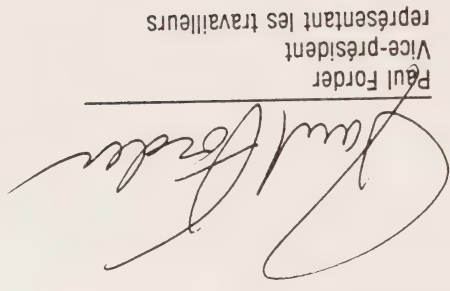 Paul Forder
Paul Forder
Vice-président
représentant les travailleurs